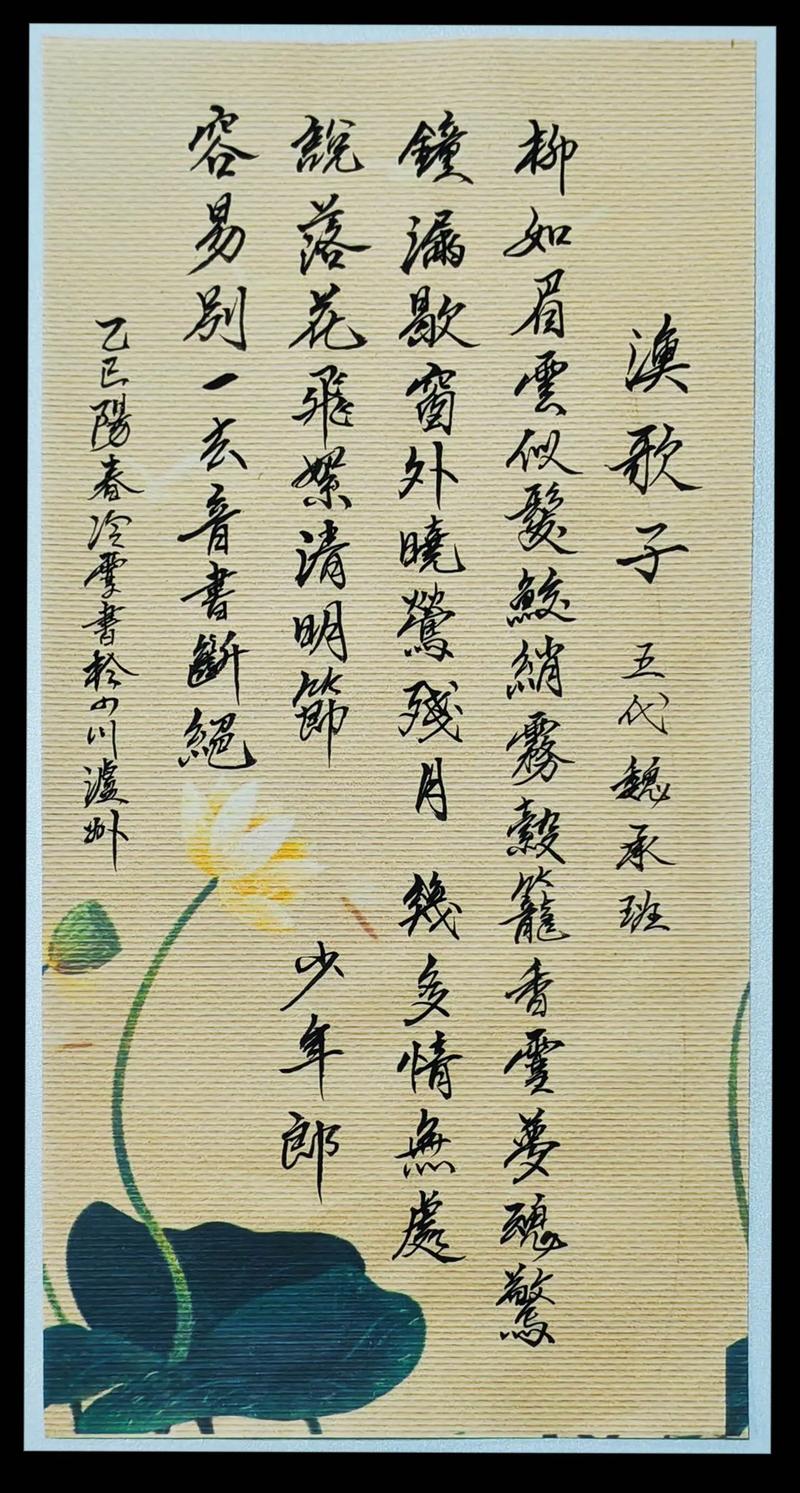 漁歌子 五代魏承班
柳如眉雲似髮鮫綃霧縠籠香雪夢魂驚
鐘漏歇窗外曉鶯殘月 幾多情無處
說落花飛絮清明節 少年郎
容易別一去音書斷絕
乙巳陽春冷雪書於四川瀘州